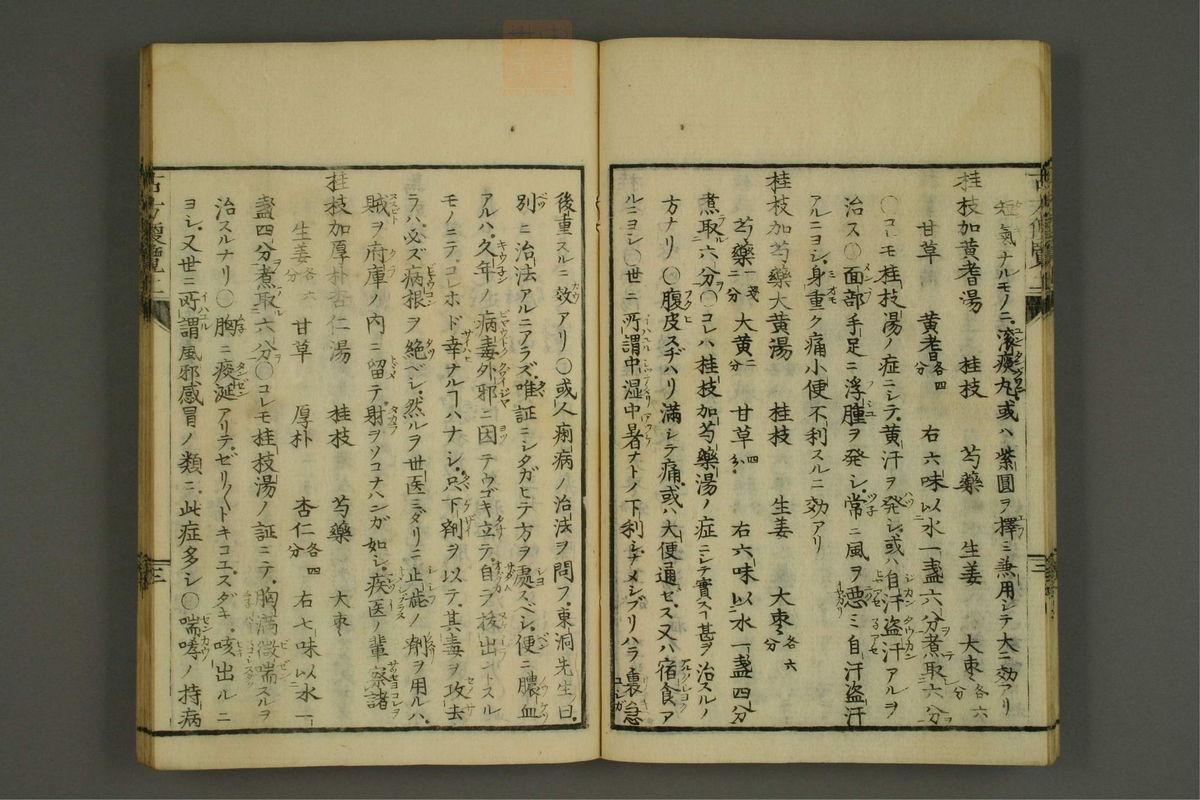 短氣ナルモノニ、滚痰丸或ハ紫圓ヲ擇ミ兼用シテ大ニ効アリ
桂枝加黄耆湯　桂枝　芍藥　生姜　大棗各六分
甘草　黄耆各四分　右六味以水一盞六分煮取六分
〇コレモ桂枝湯ノ症ニシテ、黄汗ヲ発シ、或ハ自汗盗汗アルヲ
治ス〇面部手足ニ浮腫ヲ発シ、常ニ風ヲ悪ミ自汗盗汗
アルニヨシ、身重ク痛小便不利スルニ効アリ
桂枝加芍藥大黄湯　桂枝　生姜　大棗各六分
芍藥一戔二分　大黄二分　甘草四分　右六味以水一盞四分
煮取六分〇コレハ桂枝加芍藥湯ノ症ニシテ實スル甚ヲ治スルノ
方ナリ〇腹皮スヂハリ満シテ痛、或ハ大便通ゼス、又ハ宿食ア
ルニヨシ〇世ニ所謂中湿中暑ナトノ下利、シナメシブリハラ裏急
後重スルニ效アリ〇或人痢病ノ治法ヲ問フ、東洞先生曰、
別ニ治法アルニアラズ、唯証ニシタガヒテ方ヲ處スベシ、便ニ膿血
アルハ、久年ノ病毒外邪ニ因テウゴキ立テ、自ラ抜出ントスル
モノニテ、コレホド幸ナルヿハナシ、只下剤ヲ以テ、其毒ヲ攻去
ラハ、必ズ病根ヲ絶ベシ、然ルヲ世医ミダリニ止澁ノ剤ヲ用ルハ、
賊ヲ府庫ノ内ニ留テ、財ヲソコナハンガ如シ、疾医ノ輩察諸
桂枝加厚朴杏仁湯　桂枝　芍藥　大棗
生姜各六分　甘草　厚朴　杏仁各四分　右七味以水一
盞四分煮取六分〇コレモ桂枝湯ノ証ニテ、胸満微喘スルヲ
治スルナリ〇胸ニ痰涎アリテ、ゼリ〱トキコエ、スダキ、咳出ルニ
ヨシ、又世ニ所謂風邪感冒ノ類ニ、此症多シ〇喘哮ノ持病